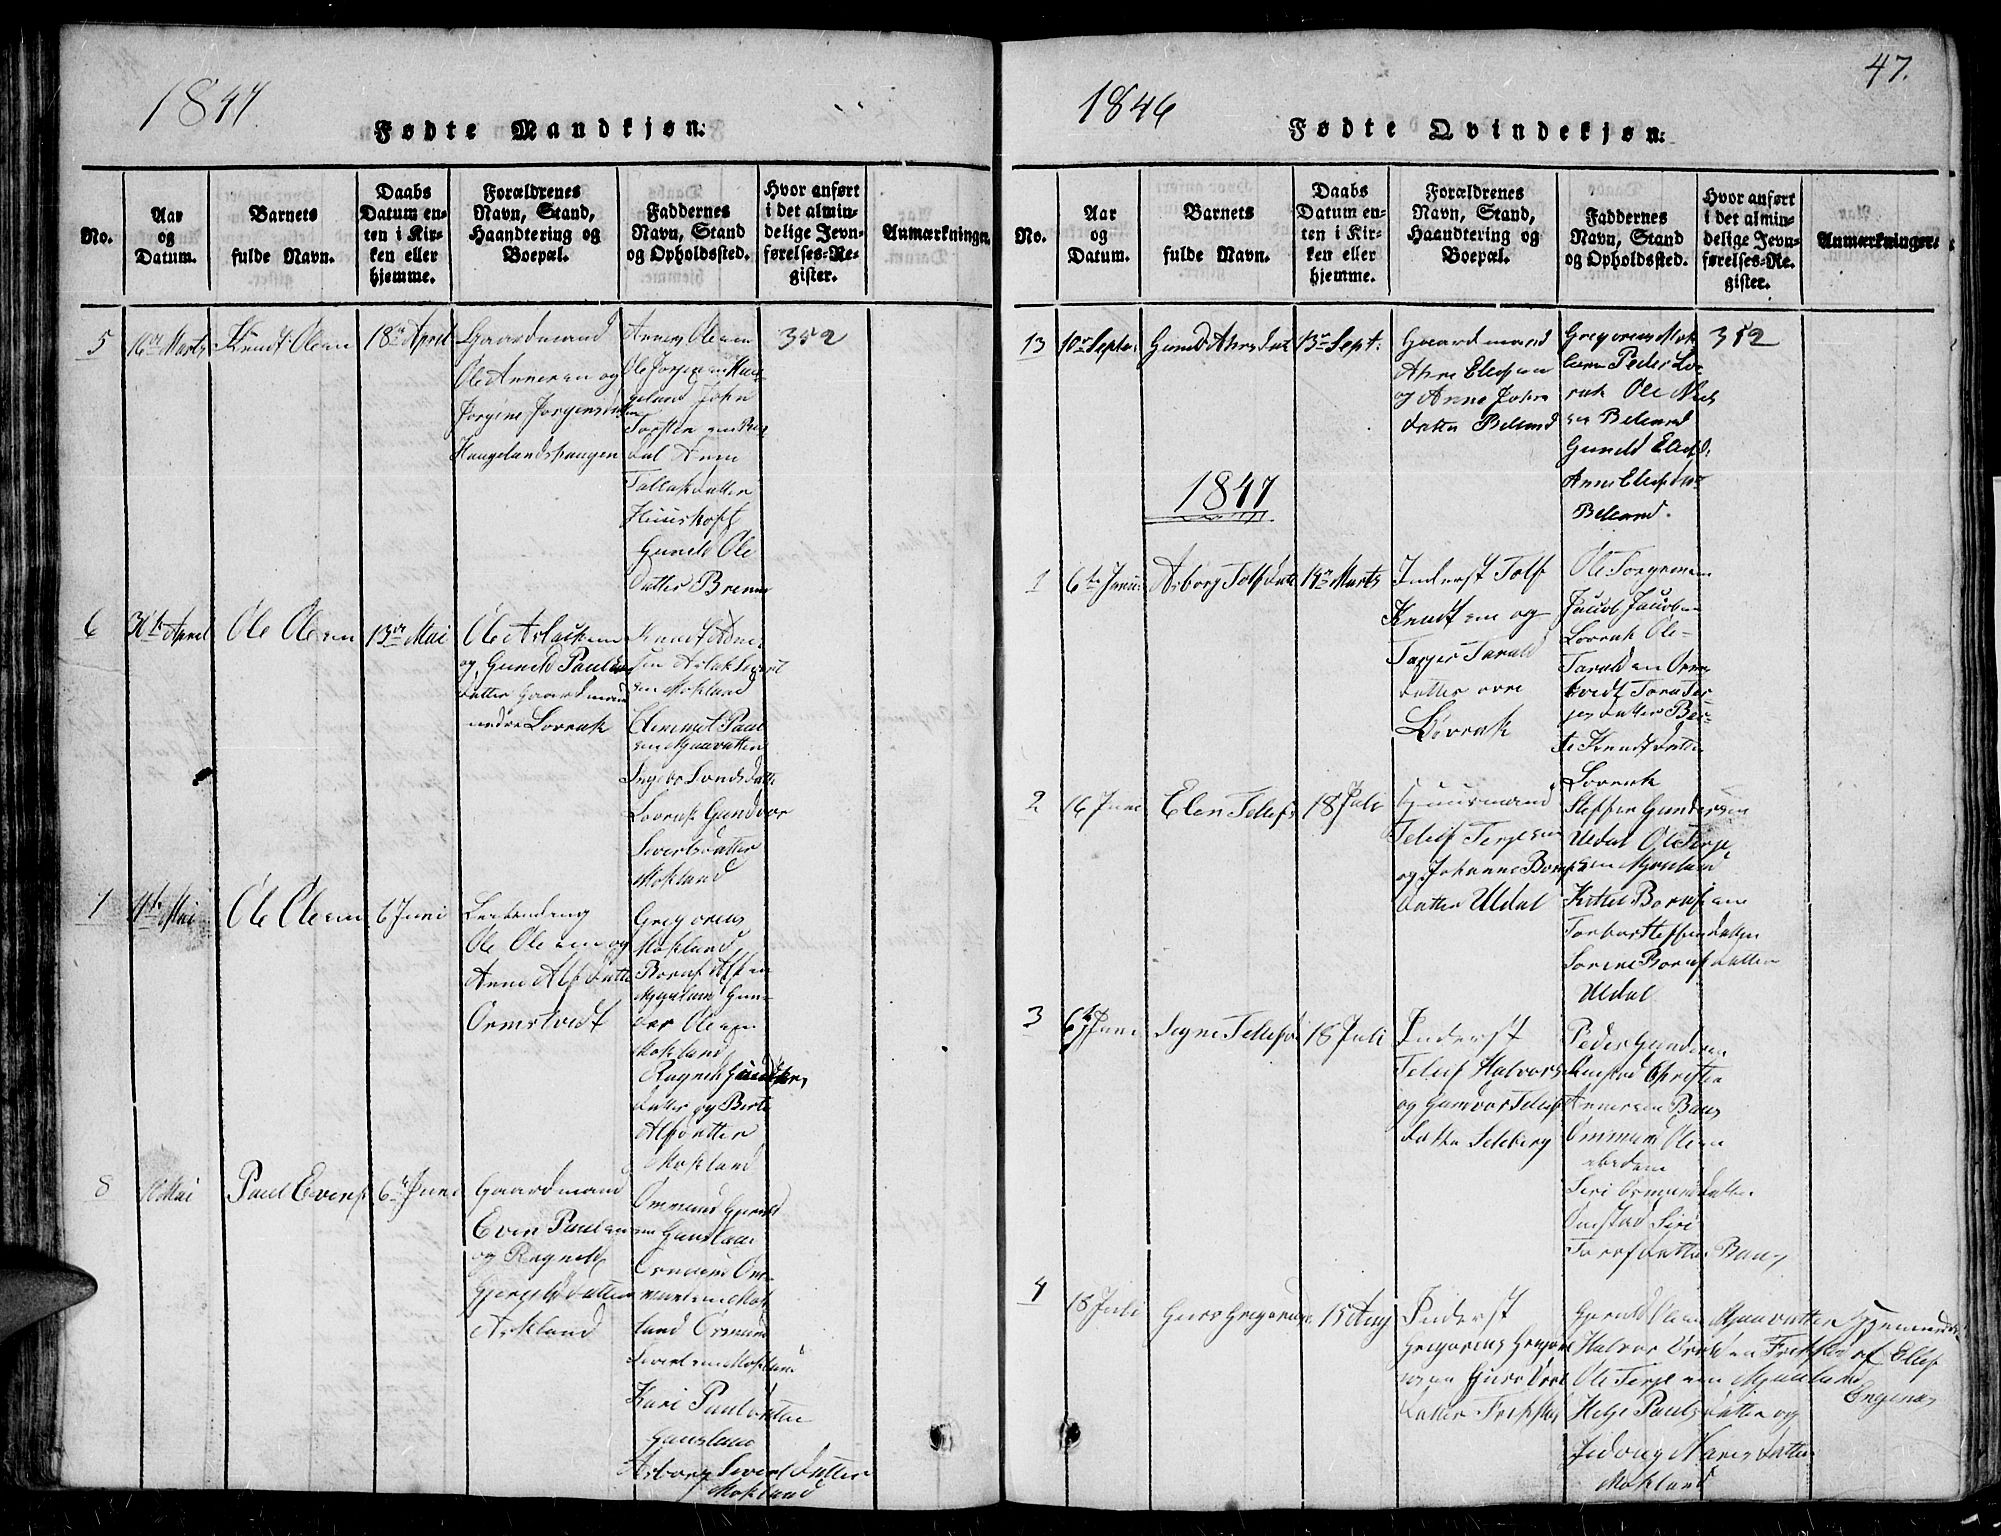 1847.
Fødte Mandkjøn.
No.
Aar
og
Datum.
Barnets
fulde Navn.
Daabs
Datum en-
ten i Kir-
ken eller
hjemme.
Forældrenes
Navn, Stand,
Haandtering og
Boepæl.
Faddernes
Navn, Stand
og Opholdssted.
Hvor anført
i det almin-
delige Jevn-
førelses-Re-
gister.
Anmærkninger.
5
16de Marts
Knudt Olesen
18de April
Gaardmand
Ole Annersen og
Jørgine Jørgensdatter
Haugelandshaugen
Anners Olesen
Ole Jørgensen Hau-
geland John
Torstensen
dal Anne
Tallaksdatter
Gunild Ole
datter Brenne
352
6
30te April
Ole Olesen
13de Mai
Ole Aslacksen
og Gunild Pauls
datter Gaardmand
nedre Løvrak
Knudt
sen Aslak Sivert
sen Mokland
Clemmet Paul
sen Mjaavatten
Ingebor Londsdatter
Lovrak Gundvor
Sivertsdatter
Mokland
7
4de Mai
Ole Olesen
6 Juni
Ole Olesen og
Anne Alfsdatter
Ormstvedt
Gregorius
Mokland
Bornt Alfsen
Mjaaland Gun-
der Olesen
Mokland
Ragnild
datter og Berte
Alfsdatter
Mokland
8
10 Mai
Paul Evens
6te Juni
Gaardmand
Even Paulsen
og Ragnild
Gjerulfsdatter
Askland
Ommund Gjeruld
sen Gauslaa
Ormund Om-
mundsen Mok
land Ormund
Sivertsen Mokland
Kari Paulsdatter
Gauslaa
Asborg Sivertsdatter
Mokland
47.
1846
Fødte Qvindekjøn.
No.
Aar
og
Datum.
Barnets
fulde Navn.
Daabs
Datum en-
ten i Kir-
ken eller
hjemme.
Forældrenes
Navn, Stand,
Haandtering og
Boepæl.
Faddernes
Navn, Stand
og Opholdssted.
Hvor anført
i det almin-
delige Jevn-
førelses-Re-
gister.
Anmærkninger.
13
10de Septbr.
Gunild Ahnsdat
13de Sept.
Gaardmand
Ahne Elefsen
og Anne Johns
datter Beland
Gregorius Mok
land Peder Lov-
rak Ole Niels
sen Beland
Gunild Elefsd.
Anne Elefsdat
Beland.
352
1847
1
6te Janu.
Asborg Tolfsdatt
14de Marts
Inderst Tolf
Knudtsen og
Tarald
datter øvre
Løvrak
Ole Torgrimsen
Jacob Jacobsen
Lovrak Ole
Taraldsen Orms
tvedt Tora Ter-
jesdatter Ber-
te Knudtsdatter
Lovrak
2
16 Juni
Elen Tellefs
18 Juli
Huusmand
Tellef Terjesen
og Johanne Bornts
datter Uldal
Steffen Gundersen
Uldal Ole Terje
sen Mjaaland
Kittel Borntsen
Torbor Steffensdatter
Sorine Borntsdatter
Uldal
3
6te Juni
Signe Tellefsd
18 Juli
Inderst
Tellef Halvors
og Gunvor Tellefs
datter Selberg
Peder Gundersen
Omstad Christen
Annersen Baas
Ommund Olesen
ibidem
Siri Osmundsdatter
Omstad Siri
Torefsdatter Baas
4
18 Juli
Guro Gregoriusd.
15 Aug
Inderst
Gregorius Gregori
ussen Guro
datter Frikstad
Gjeruld Olsen Mjaavatten
Halvor
Ole Terjesen Mjaaland
Helje Paulsdatter og
Mokland
Hjemmedøbt
af Ellef
Engenes